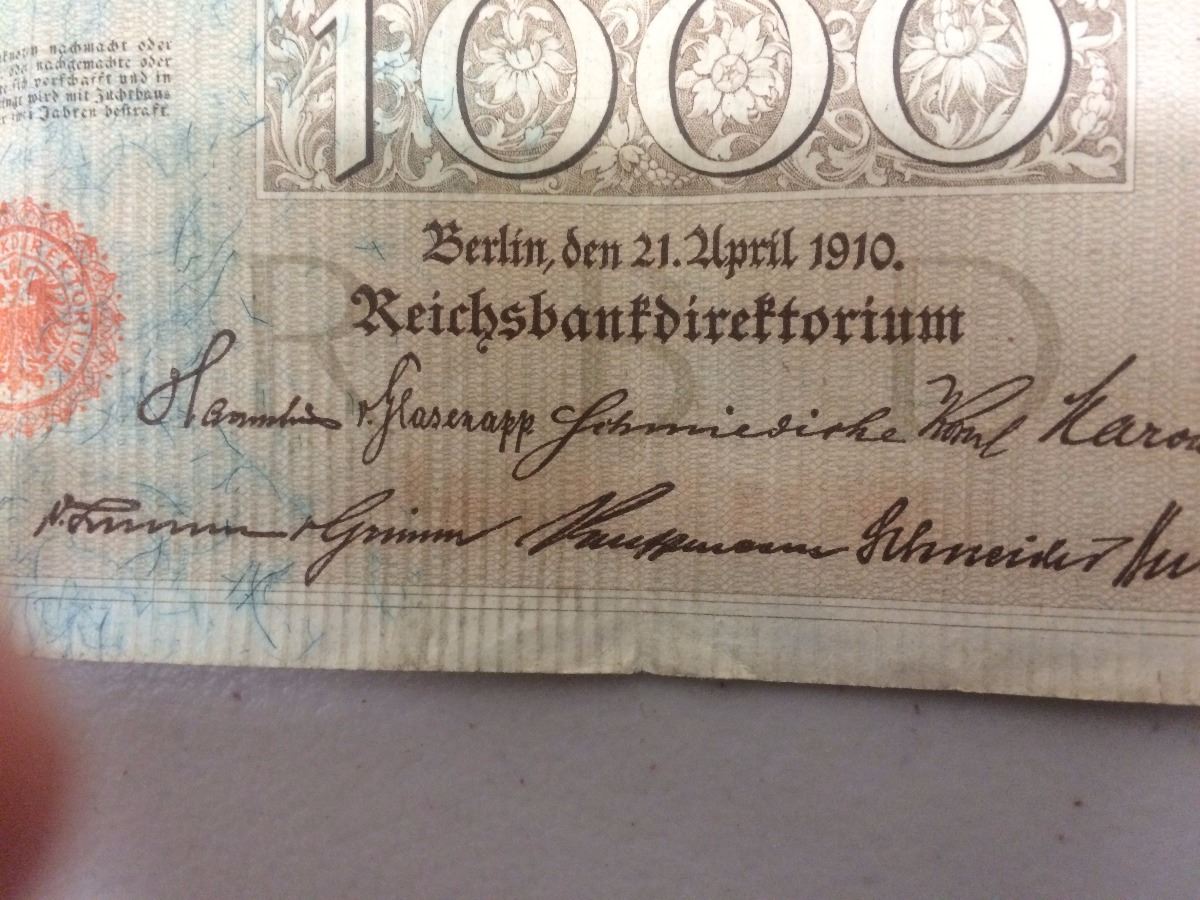 nachmacht oder
nachgemachte oder
sich verschafft und in
wird mit Zuchthaus
Jahren bestraft.
1000
Berlin, den 21. April 1910.
Reichsbankdirektorium
RBD
v. Glasenapp Schmiedicke Korn
v. Grimm Kauffmann Schneider